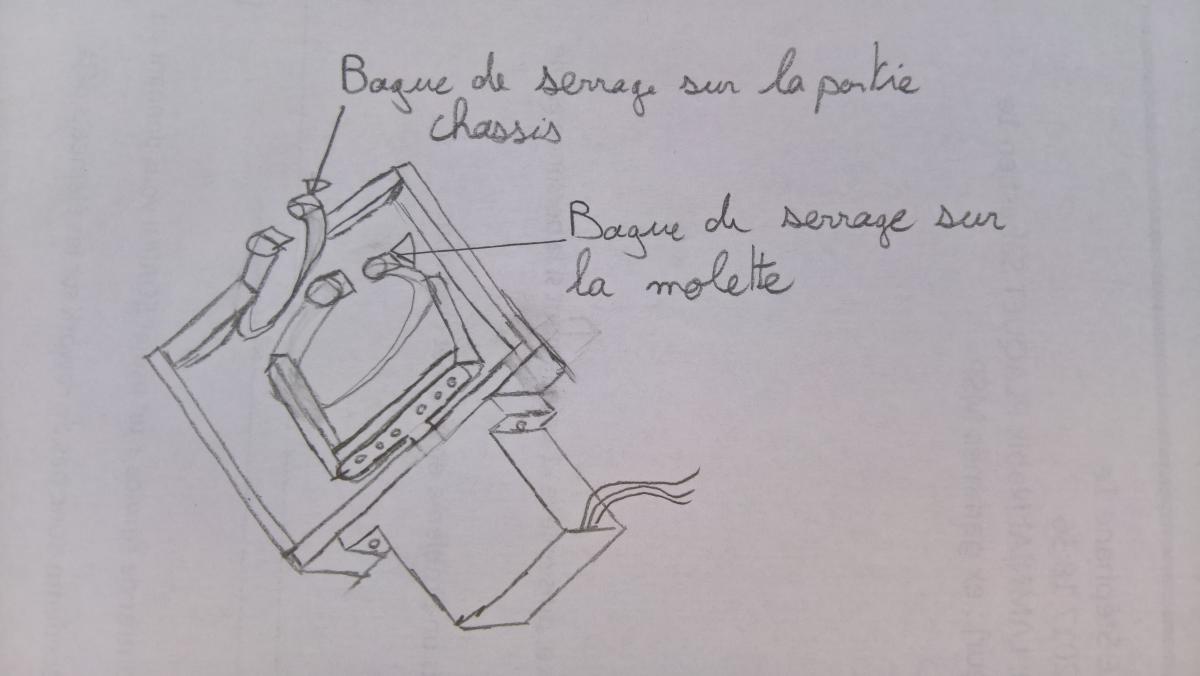 Bague de serrage sur la partie
chassis
Bague de serrage sur
la molette